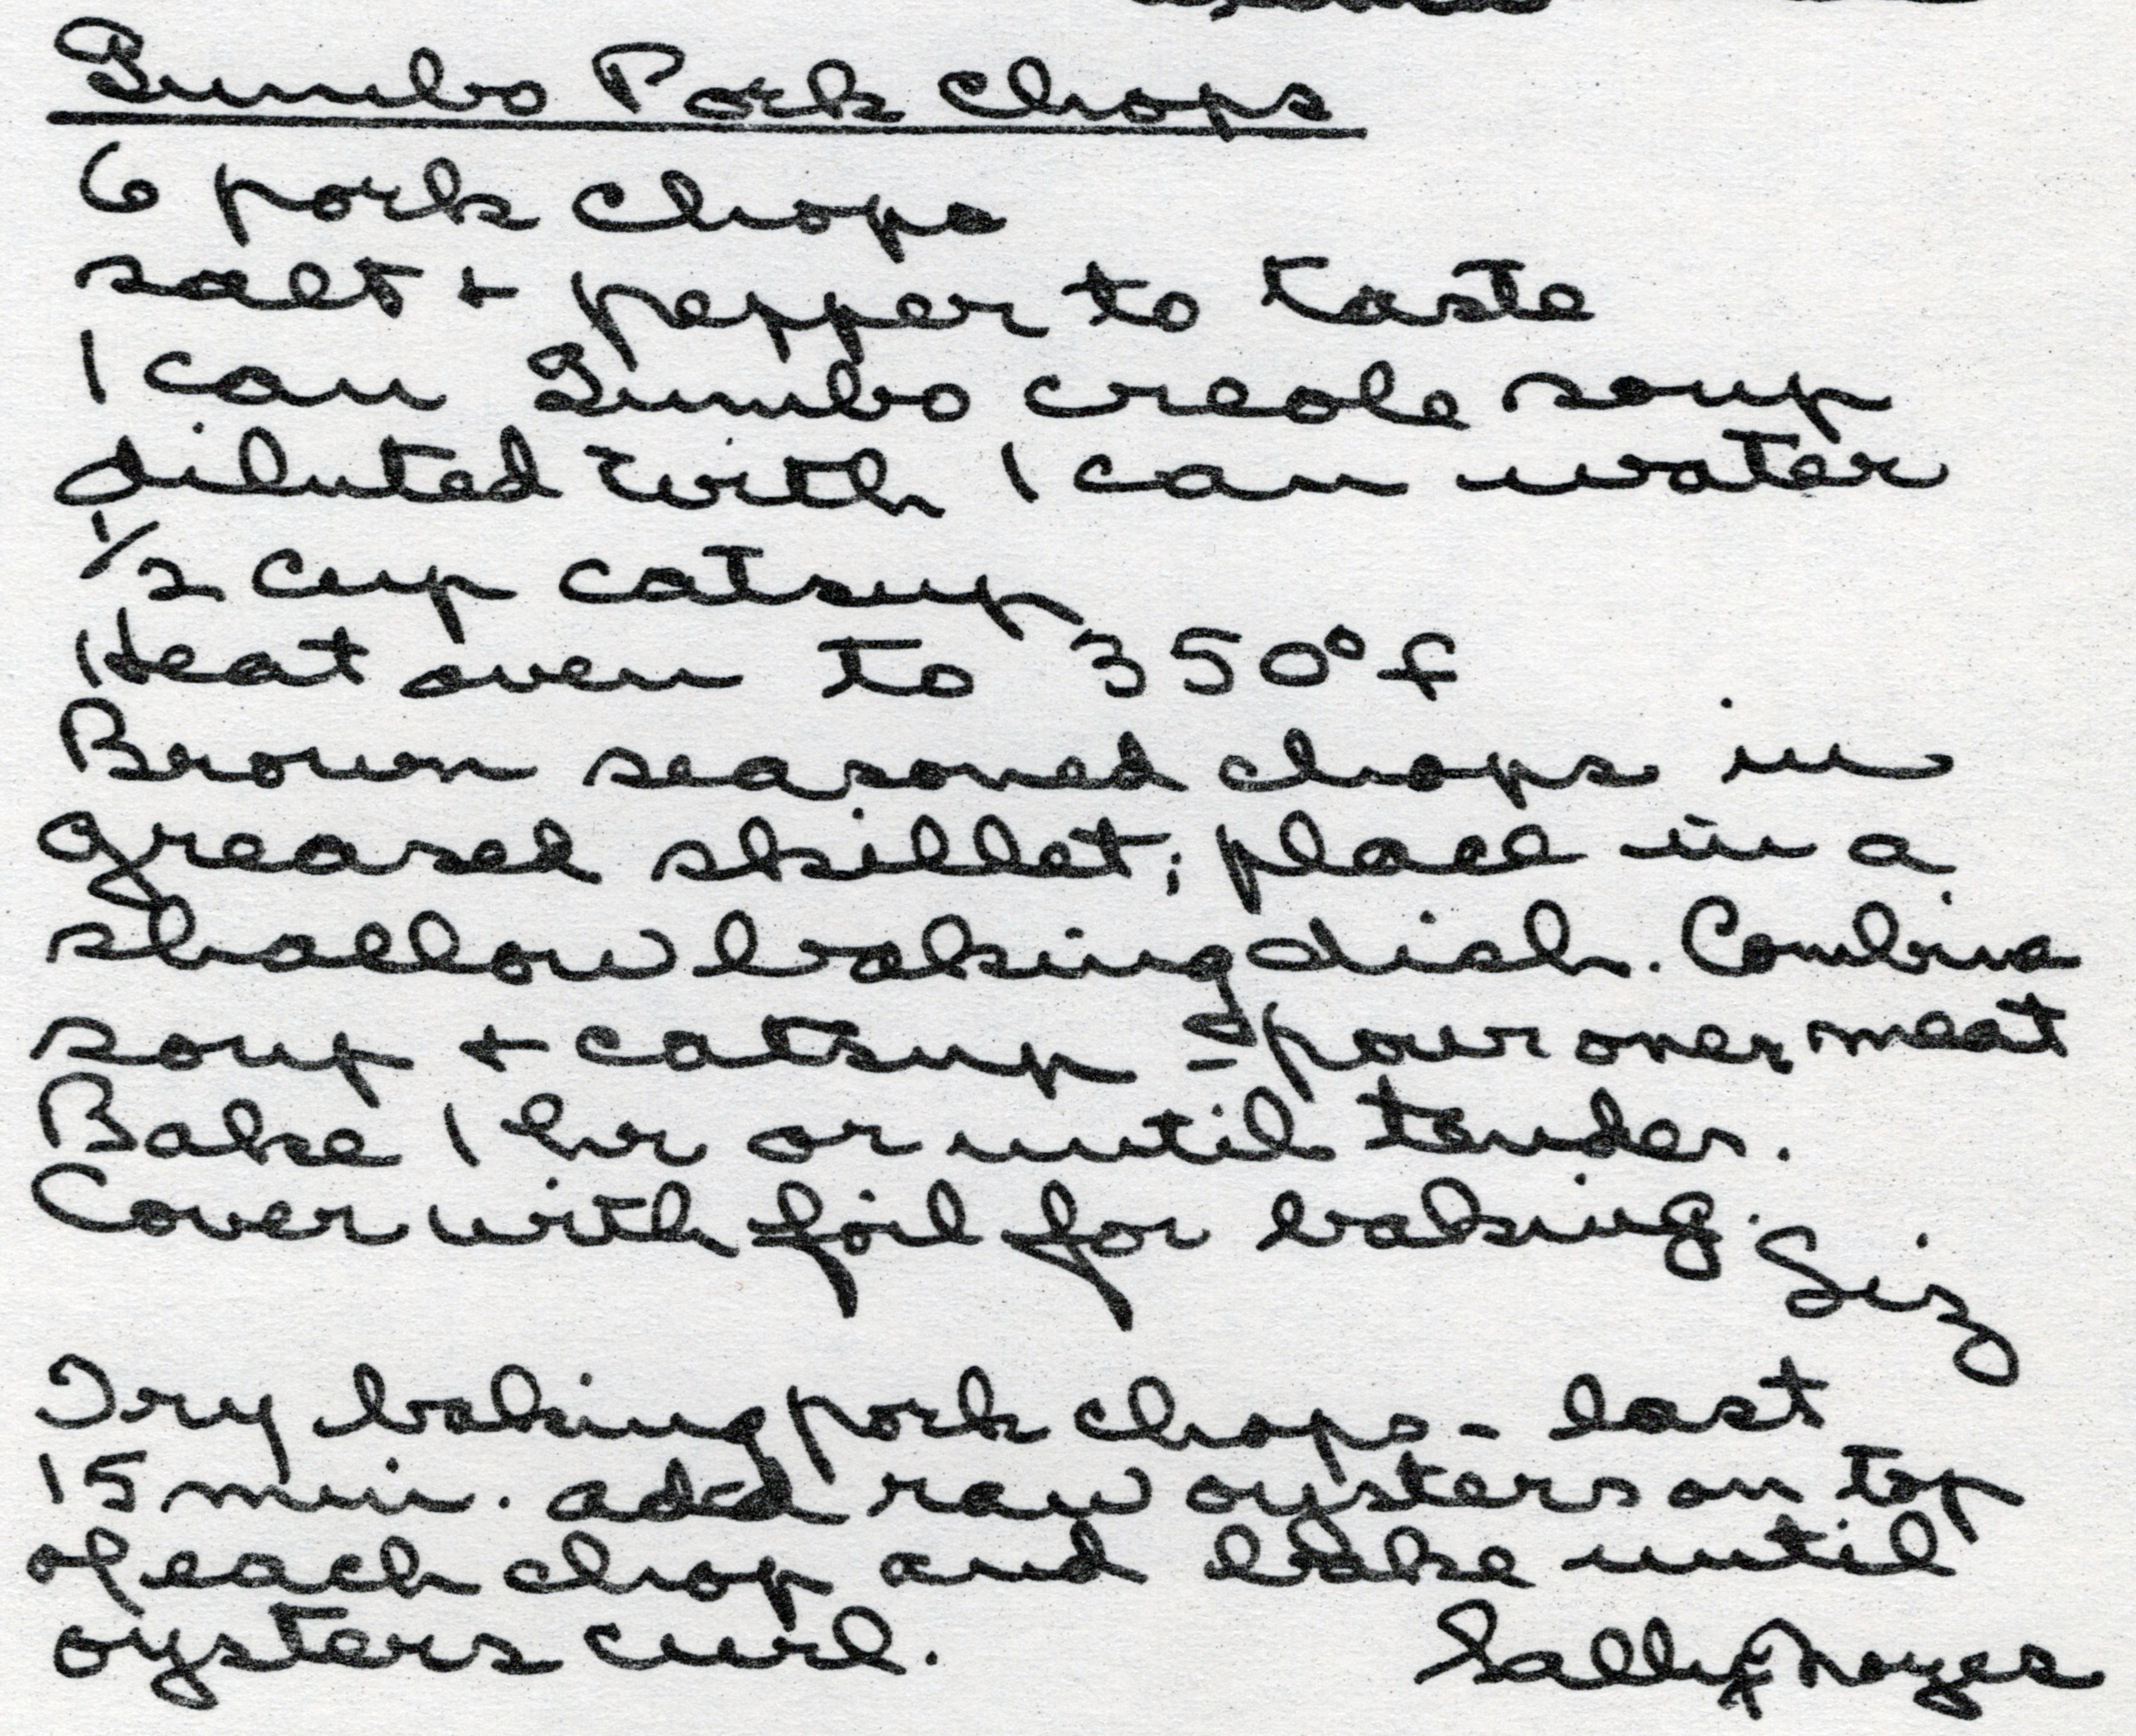 Gumbo Pork Chops
6 pork chops
salt + pepper to taste
1 can Gumbo creole soup
diluted with 1 can water
1/2 cup catsup
Heat oven to 350° f
Brown seasoned chops in
greased skillet; place in a
shallow baking dish. Combine
soup + catsup - pour over meat
Bake 1 hr or until tender.
Cover with foil for baking.
Siz
Try baking pork chops - last
15 min. add raw oysters on top
of each chop and bake until
oysters curl.
Sally Noyes